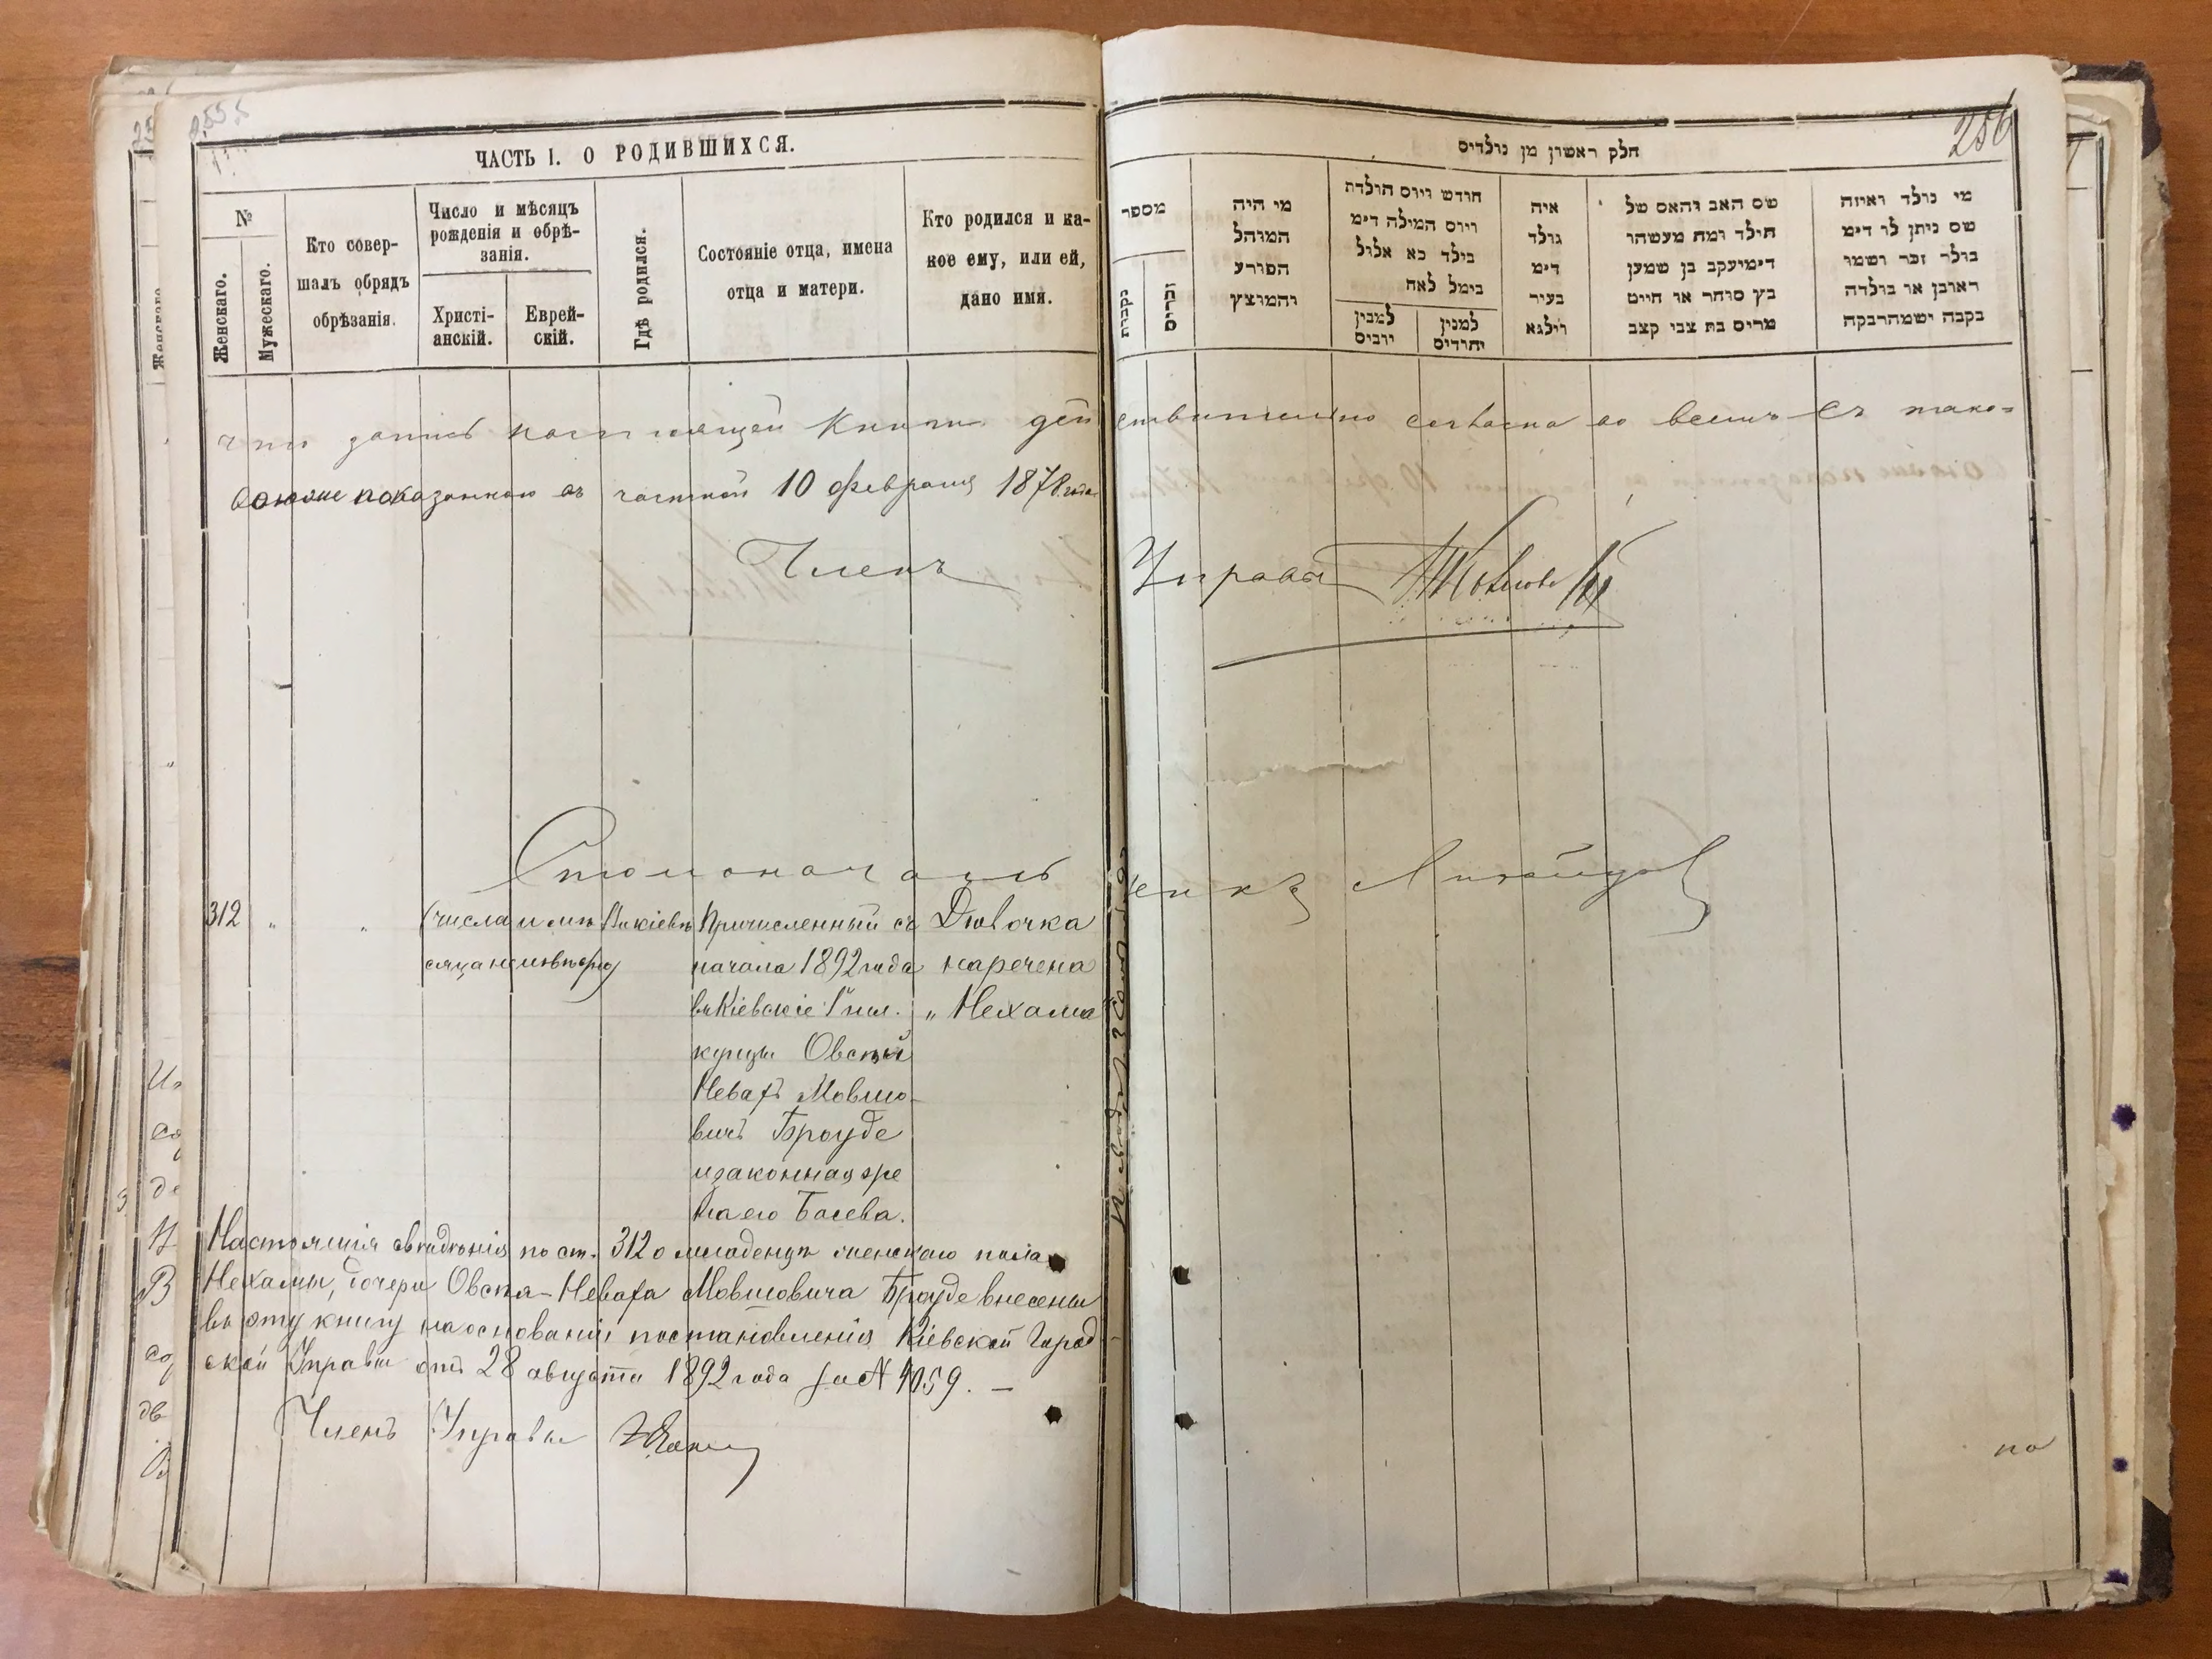 ЧАСТЬ I. О РОДИВШИХСЯ.
№
Женскаго.
Мужескаго.
Кто совер-
шалъ обрядъ
обрѣзанія.
Число и мѣсяцъ
рожденія и обрѣ-
занія.
Христі-
анскій.
Еврей-
скій.
Гдѣ родился.
Состояніе отца, имена
отца и матери.
Кто родился и ка-
кое ему, или ей,
дано имя.
חלק ראשון מן נולדים
256
מספר
נקבות
זכרים
מי היה
המוהל
הפורע
והמוצץ
חודש ויום הולדת
ויום המילה דימ
בילד כא אלול
בימל לאח
למנין
יהודים
איה
נולד
דימ
בעיר
ווילנא
שם האב והאם של
הילד ומה מעשהו
דימיעקב בן שמען
כץ סוחר או חייט
מרים בת צבי קצב
מי נולד ואיזה
שם ניתן לו דימ
בולר זכר ושמו
ראובן או בולדה
בקבה ושמהרבקה
что запись настоящей книги дѣйствительно согласна во всемъ съ тако-
вою же показанною въ частной 10 февраля 1878 года
Членъ Управы
Столоначальникъ
312 " " Числа и мѣ- Въ Кіевѣ Причисленный съ Дѣвочка
сяца неизвѣстно начала 1892 года наречена
въ Кіевскіе 1 гил. „ Нехама
купцы Овсѣй
Невахъ Мовшо-
вичъ Броуде
и законная же
на его Басева.
Настоящія свѣдѣнія по ст. 312 о младенцѣ женскаго пола
Нехамы, дочери Овсѣя-Неваха Мовшовича Броуде внесены
въ эту книгу на основаніи постановленія Кіевской Город
ской Управы отъ 28 августа 1892 года за № 4059. —
Членъ Управы
по